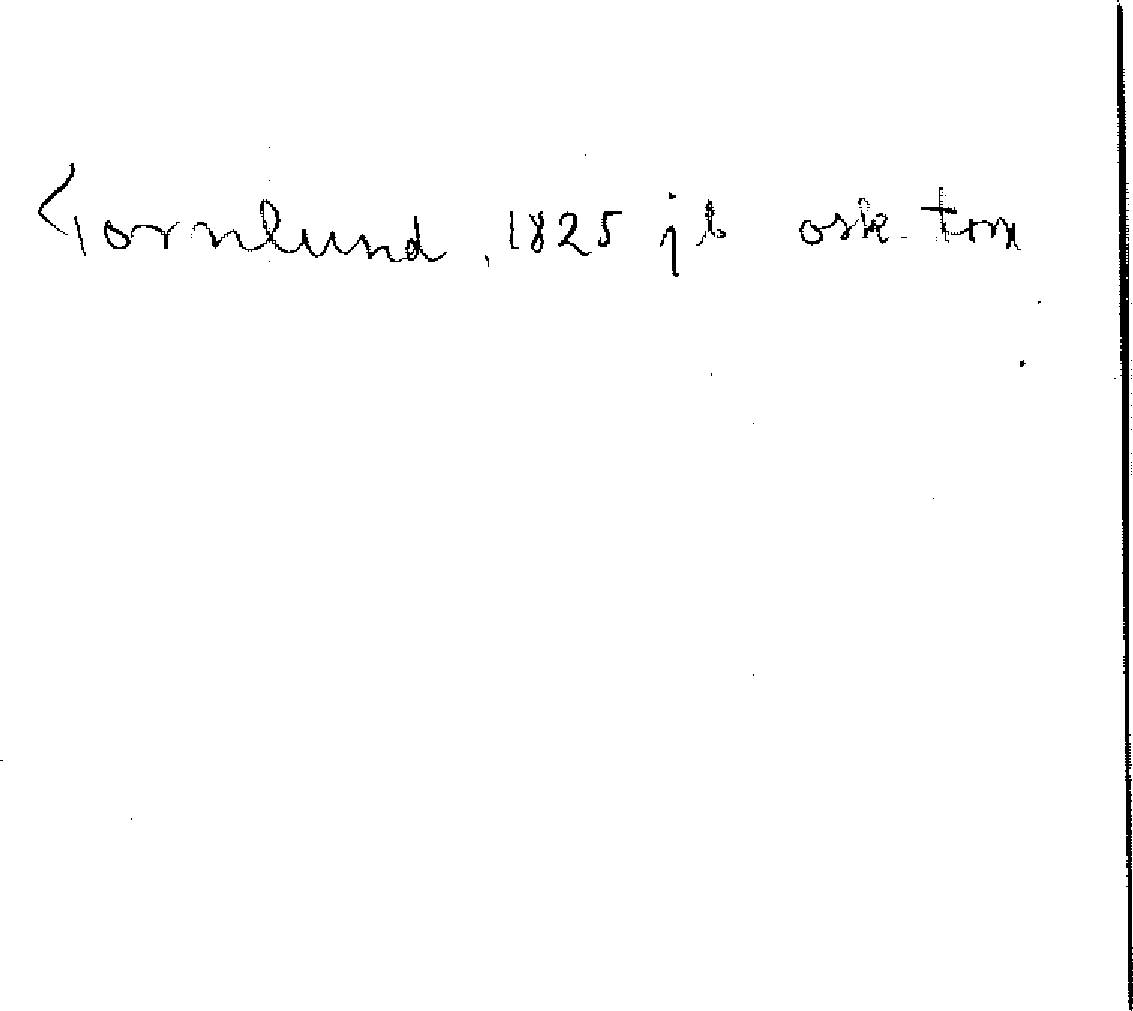 Tornlund, 1825 jb osk. torn